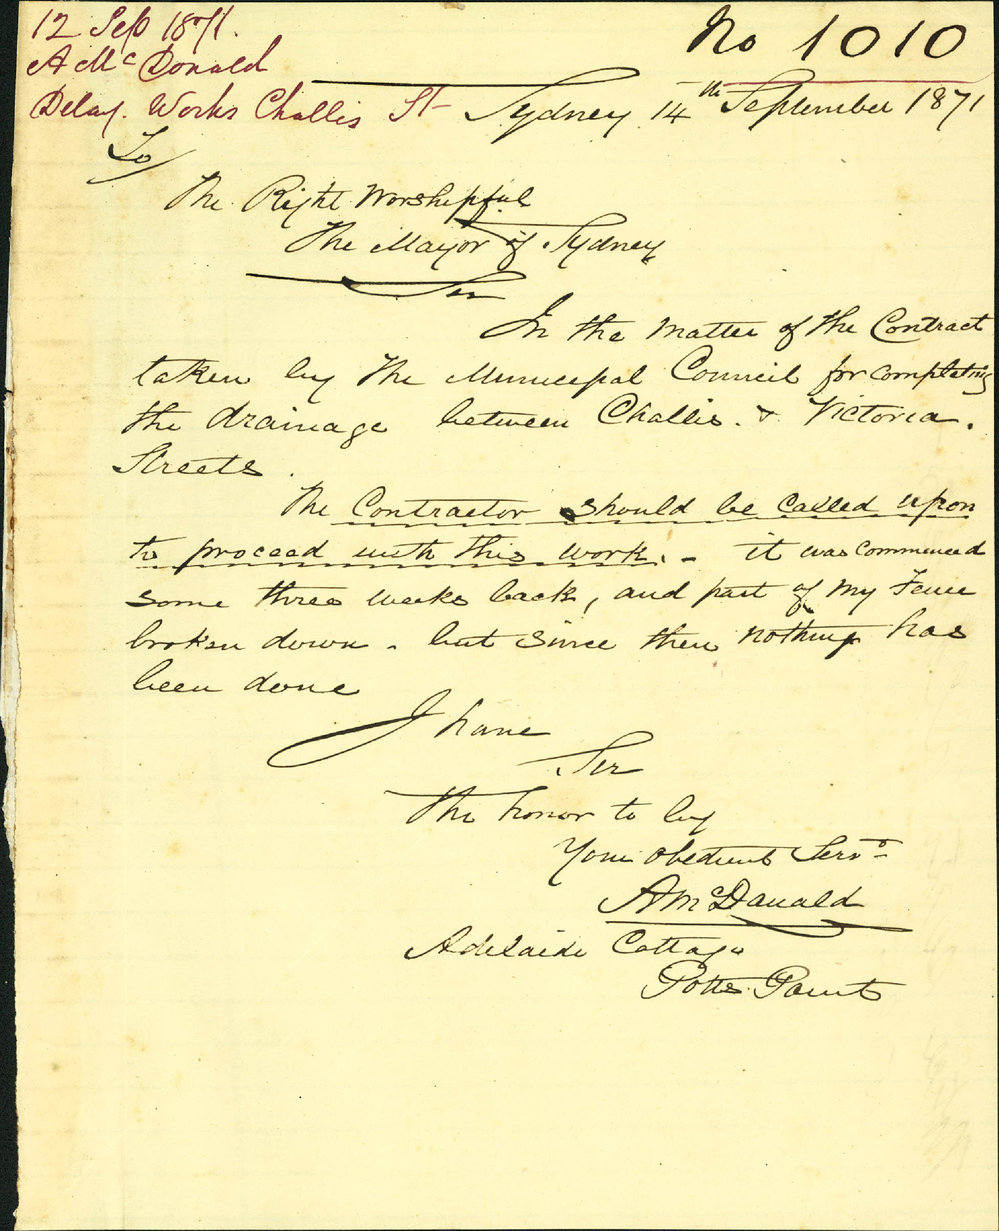 12 Sep 1871.
A McDonald
Delay. Works Challis St
No 1010
Sydney 14th September 1871
To
The Right Worshipful
The Mayor of Sydney
Sir
In the matter of the Contract
taken by the Municipal Council for completing
the drainage between Challis. & Victoria.
Streets.
The Contractor should be called upon
to proceed with this work. - it was commenced
some three weeks back, and part of my Fence
broken down. but since then nothing has
been done
I have
Sir
The honor to by
Your obedient Servt
A McDonald
Adelaide Cottage
Potts Point